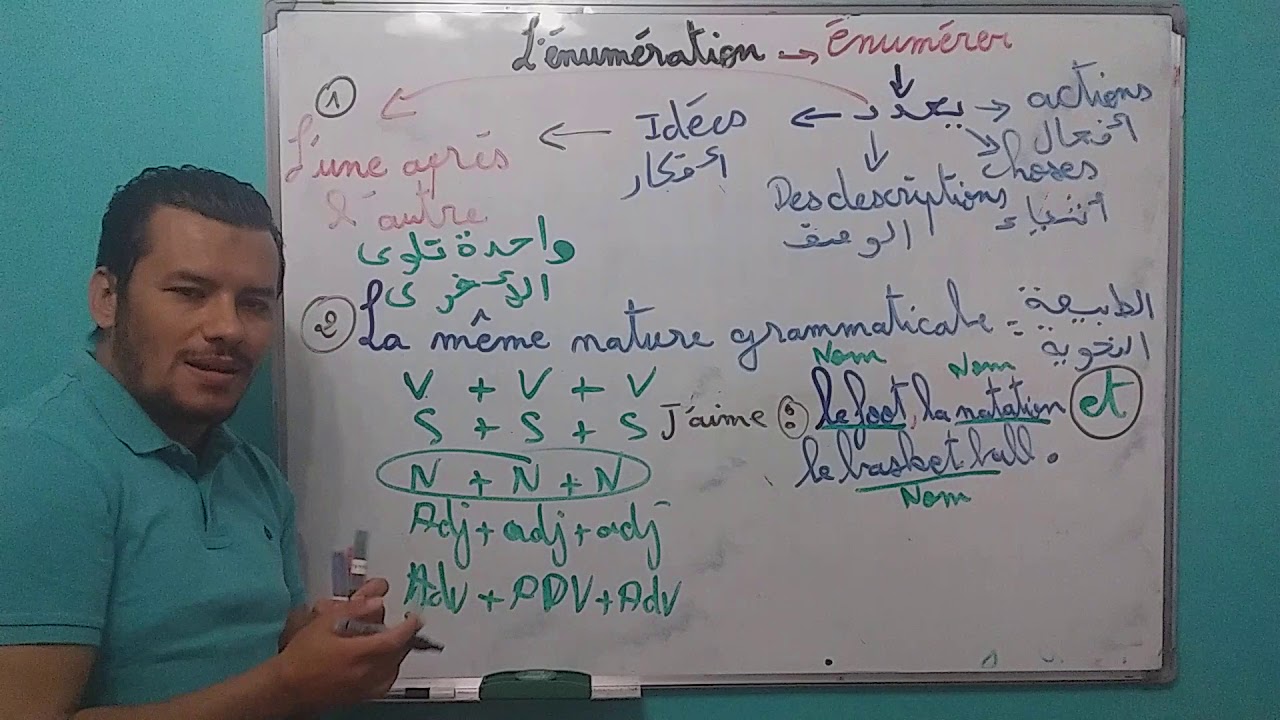 L'énumération → énumérer
①
Idées ← يعدد → actions
أفكار
أفعال
choses
أشياء
Des descriptions
الوصف
L'une après
l'autre
واحدة تلوى
الأخرى
② La même nature grammaticale = الطبيعة
النحوية
V + V + V
S + S + S
N + N + N
Adj + adj + adj
Adv + ADV + Adv
Nom Nom
J'aime : le foot, la natation et
le basket ball.
Nom